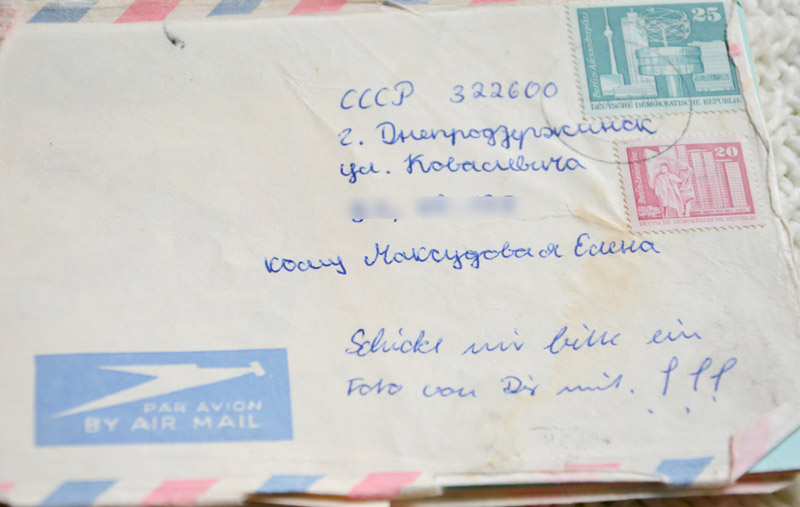 СССР 322600
г. Днепродзержинск
ул. Ковасивича
кому Максудовая Елена
Schicke mir bitte ein
Foto von Dir mit. !!!
PAR AVION
BY AIR MAIL
25
Berlin, Alexanderplatz
DEUTSCHE DEMOKRATISCHE REPUBLIK
20
DEUTSCHE DEMOKRATISCHE REPUBLIK